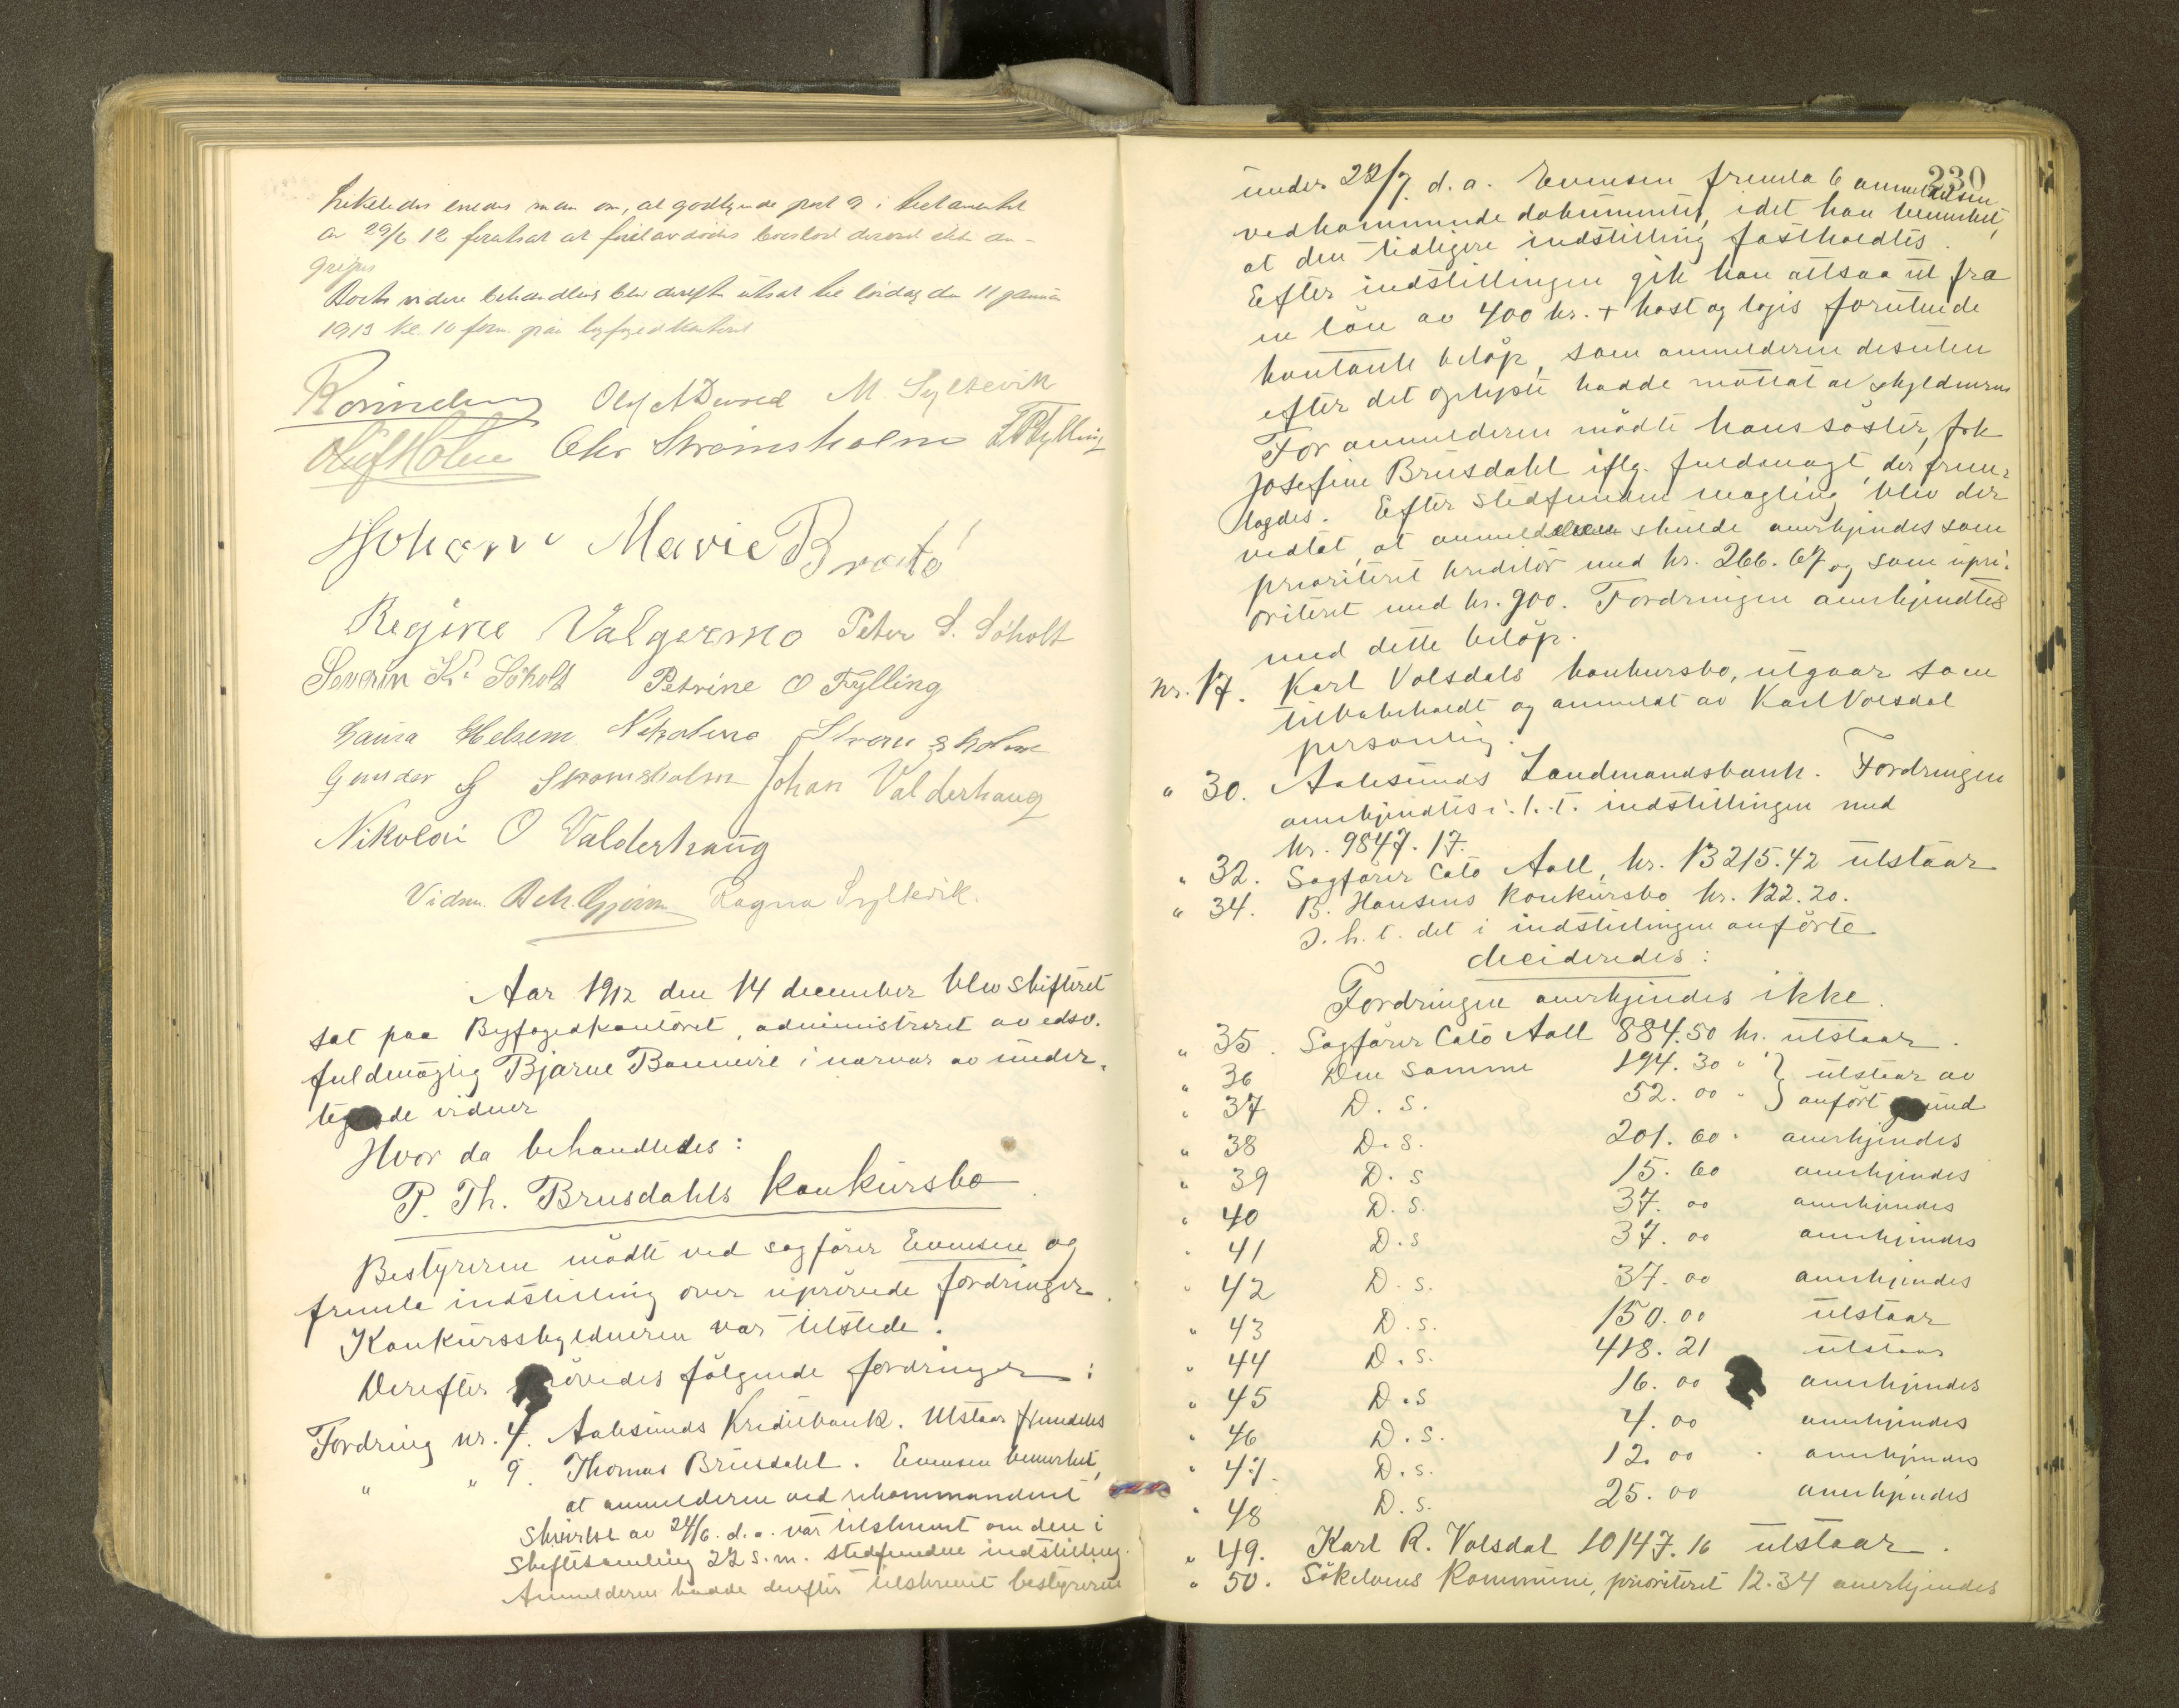 Likeledes enedes man om, at godtgjørende post 9 i testamentet
av 29/6 12 forutsat at førstavdødes boeslod derved ikke an-
gripes
Boets videre behandling blev derefter utsat til lördag den 11 januar
1913 kl. 10 form. paa byfogedkontoret
Rönneberg Olaf A Devold M. Syltevik
Oluf Holm Chr Strömsholm
Johan Marie Bratö
Regine Valgermo Peter S. Söholt
Severin K. Söholt Petrine O Fylling
Laura Helsem Nikoline Stromsholm
Gunder G Stromsholm Johan Valderhaug
Nikolai O Valderhaug
Vidne. Ragna Syltevik.
Aar 1912 den 14 december blev skifteret
sat paa Byfogedkontoret, administreret av edsv.
fuldmægtig Bjarne Bonnevie i nærvær av under-
tegnede vidner
Hvor da behandledes:
P. Th. Brusdahls konkursbo
Bestyreren mödte ved sagförer Evensen og
fremla indstilling over uprövede fordringer.
Konkursskyldneren var tilstede.
Derefter prövedes fölgende fordringer:
Fordring nr. 4. Aalesunds Kreditbank. Utstaar fremdeles
" " 9. Thomas Brusdahl. Evensen bemerket,
at anmelderen ved rekommandert
skrivelse av 24/6. d. a. var tilskrevet om den i
skiftesamling 22 s. m. stedfundne indstilling.
Anmelderen hadde derefter tilskrevet bestyreren
230
under 22/7 d. a. Evensen fremla 6 anmeldelsen
vedkommende dokumenter, idet han bemerket,
at den tidligere indstilling fastholdtes.
Efter indstillingen gik han altsaa ut fra
en lön av 400 kr. + kost og logis foruten de
kontante belöp, som anmelderen desuten
efter det oplyste hadde mottat av skyldneren
For anmelderen mödte hans söster, frk
Josefine Brusdahl iflg. fuldmagt, der frem-
lagdes. Efter stedfunden mægling blev der
vedtat, at anmelderen skulde anerkjendes som
prioritert kreditor med kr. 266. 67 og som upri-
oritert med kr. 900. Fordringen anerkjendtes
med dette belöp.
nr. 17. Karl Volsdals konkursbo, utgaar som
tilbakeholdt og anmeldt av Karl Volsdal
personlig.
" 30. Aalesunds Landmandsbank. Fordringen
anerkjendtes i. h. t. indstillingen med
kr. 9847. 17.
" 32. Sagförer Cato Aall, kr. 13215. 42 utstaar
" 34. B. Hansens konkursbo kr. 122. 20.
I. h. t. det i indstillingen anförte
decideredes:
Fordringen anerkjendes ikke.
" 35. Sagförer Cato Aall 884. 50 kr. utstaar.
" 36 Den samme 194. 30 " } utstaar av
" 37 D. s. 52. 00 " } anfört grund
" 38 D. s. 201. 60 " anerkjendes
" 39 D. s 15. 60 anerkjendes
" 40 D. s. 37. 00 anerkjendes
" 41 D. s 37. 00 anerkjendes
" 42 D. s. 37. 00 anerkjendes
" 43 D. s. 150. 00 utstaar
" 44 D. s. 418. 21 utstaar
" 45 D. s 16. 00 anerkjendes
" 46 D. s. 4. 00 anerkjendes
" 47. D. s. 12. 00 anerkjendes
" 48 D. s. 25. 00 anerkjendes
" 49. Karl R. Volsdal 10147. 16 utstaar.
" 50. Sökelvens kommune, prioriteret 12. 34 anerkjendes